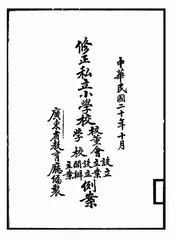 中華民國二十年十月
修正私立小學校
校董會
設立
立案
學校
設立
開辦
立案
例案
廣東省教育廳編製